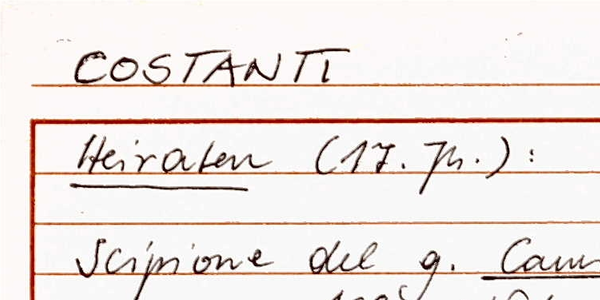 COSTANTI
Heiraten (17. Jh.):
Scipione del g.